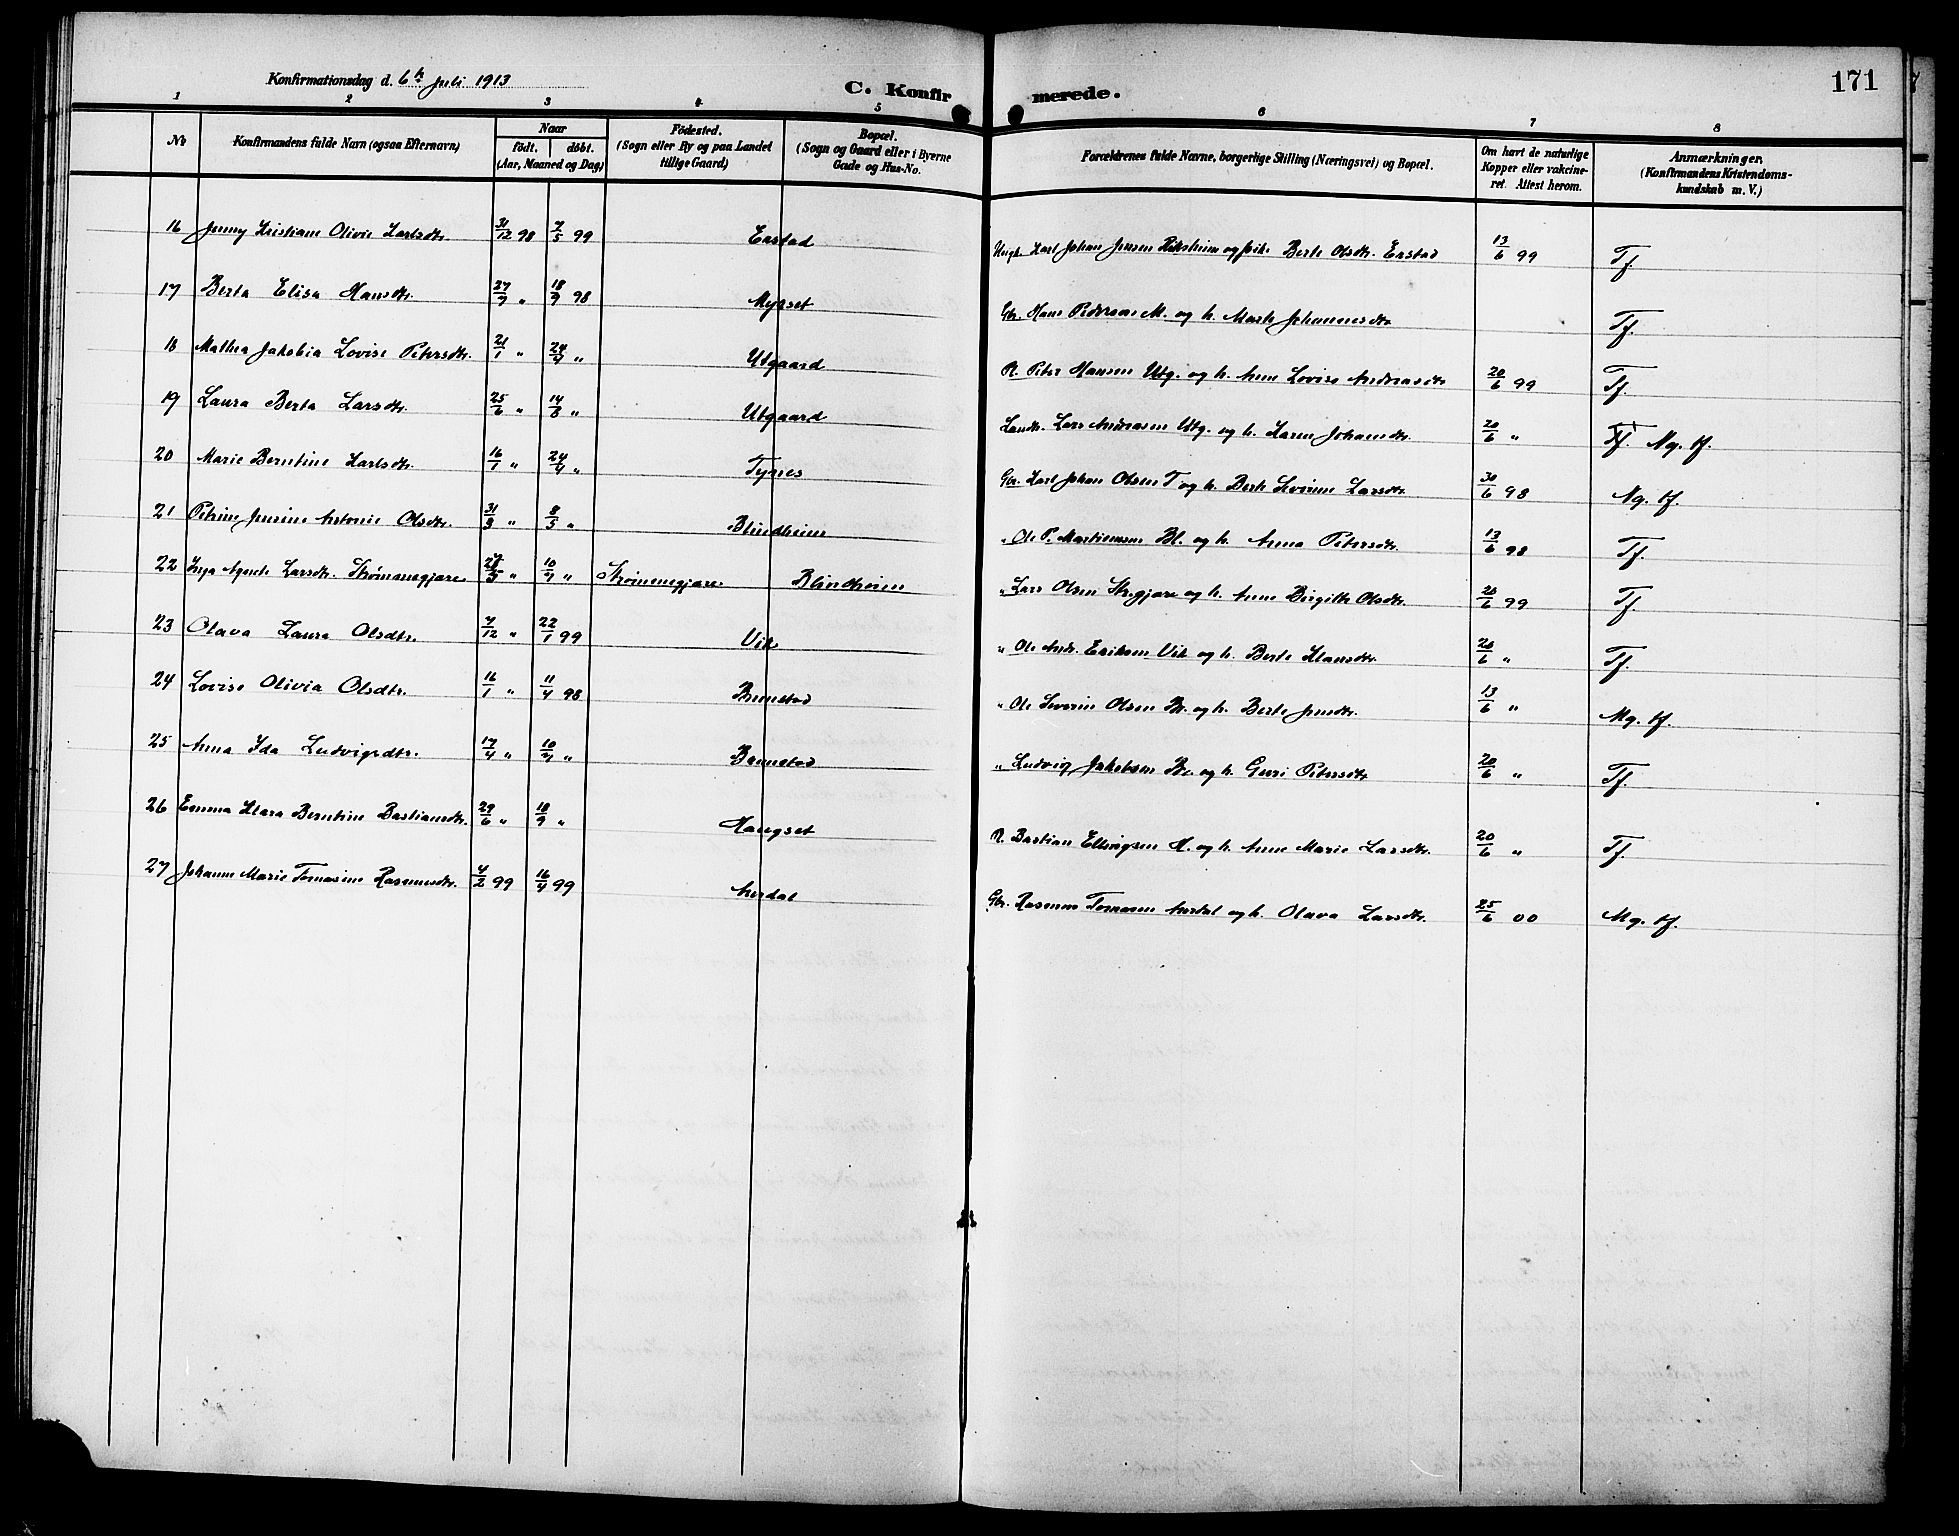 171
Konfirmationsdag d. 6te Juli 1913
C. Konfirmerede.
1 2 3 4 5 6 7 8
No
Konfirmandens fulde Navn (ogsaa Efternavn)
Naar
födt. döbt.
(Aar, Maaned og Dag)
Födested.
(Sogn eller By og paa Landet
tillige Gaard)
Bopæl.
(Sogn og Gaard eller i Byerne
Gade og Hus-No.
Forældrenes fulde Navne, borgerlige Stilling (Næringsvei) og Bopæl.
Om havt de naturlige
Kopper eller vakcine-
ret. Attest herom.
Anmærkninger.
(Konfirmandens Kristendoms-
kundskab m. V.)
16 Jenny Kristiane Olivie Karlsdtr. 31/12 98 7/5 99 Erstad Karl Johan Jensen og Berte Olsdtr. Erstad 13/6 99 Tf.
17 Berta Elisa Hansdtr. 27/7 " 18/9 98 Myrset Gbr. Hans Pedersen M. og h. Marte Johannesdtr. Tf.
18 Mathea Jakobia Lovise Petersdtr. 21/1 " 24/4 " Utgaard P. Peter Hansen Utg. og h. Anne Lovise Andreasdtr. 20/6 99 Tf.
19 Laura Berta Larsdtr. 25/6 " 14/8 " Utgaard Lars Andreasen Utg. og h. Karen Johansdtr. 20/6 " Tf. Mg. tf.
20 Marie Berntine Karlsdtr. 16/1 " 24/4 " Tynes Gbr. Karl Johan Olsen T. og h. Berte Severine Larsdtr. 30/6 98 Mg. tf.
21 Petrine Jensine Antonie Olsdtr. 31/3 " 8/5 " Blindheim " Ole P. Martinusen Bl. og h. Anna Petersdtr. 13/6 98 Tf.
22 Inga Agnete Larsdtr. Strømmegjære " 10/7 " Strømmegjære Blindheim " Lars Olsen Strgjære og h. Anne Birgitte Olsdtr. 20/6 99 Tf.
23 Olava Laura Olsdtr. 7/12 " 22/1 99 Vik " Ole Andr. Eriksen Vik og h. Berte Klausdtr. 20/6 " Tf.
24 Lovise Olivia Olsdtr. 16/1 " 11/4 98 Brunstad " Ole Severin Olsen Br. og h. Berte Jensdtr. 13/6 " Mg. tf.
25 Anna Ida Ludvigsdtr. 17/4 " 10/7 " Brunstad " Ludvig Jakobsen Br. og h. Guri Petersdtr. 20/6 " Tf.
26 Emma Klara Berntine Bastiansdtr. 29/6 " 18/9 " Haugset P. Bastian Ellingsen H. og h. Anne Marie Larsdtr. 20/6 " Tf.
27 Johanne Marie Tomasine Rasmusdtr. 4/2 99 16/4 99 Aurdal Gbr. Rasmus Tomasen Aurdal og h. Olava Larsdtr. 25/6 00 Mg. tf.